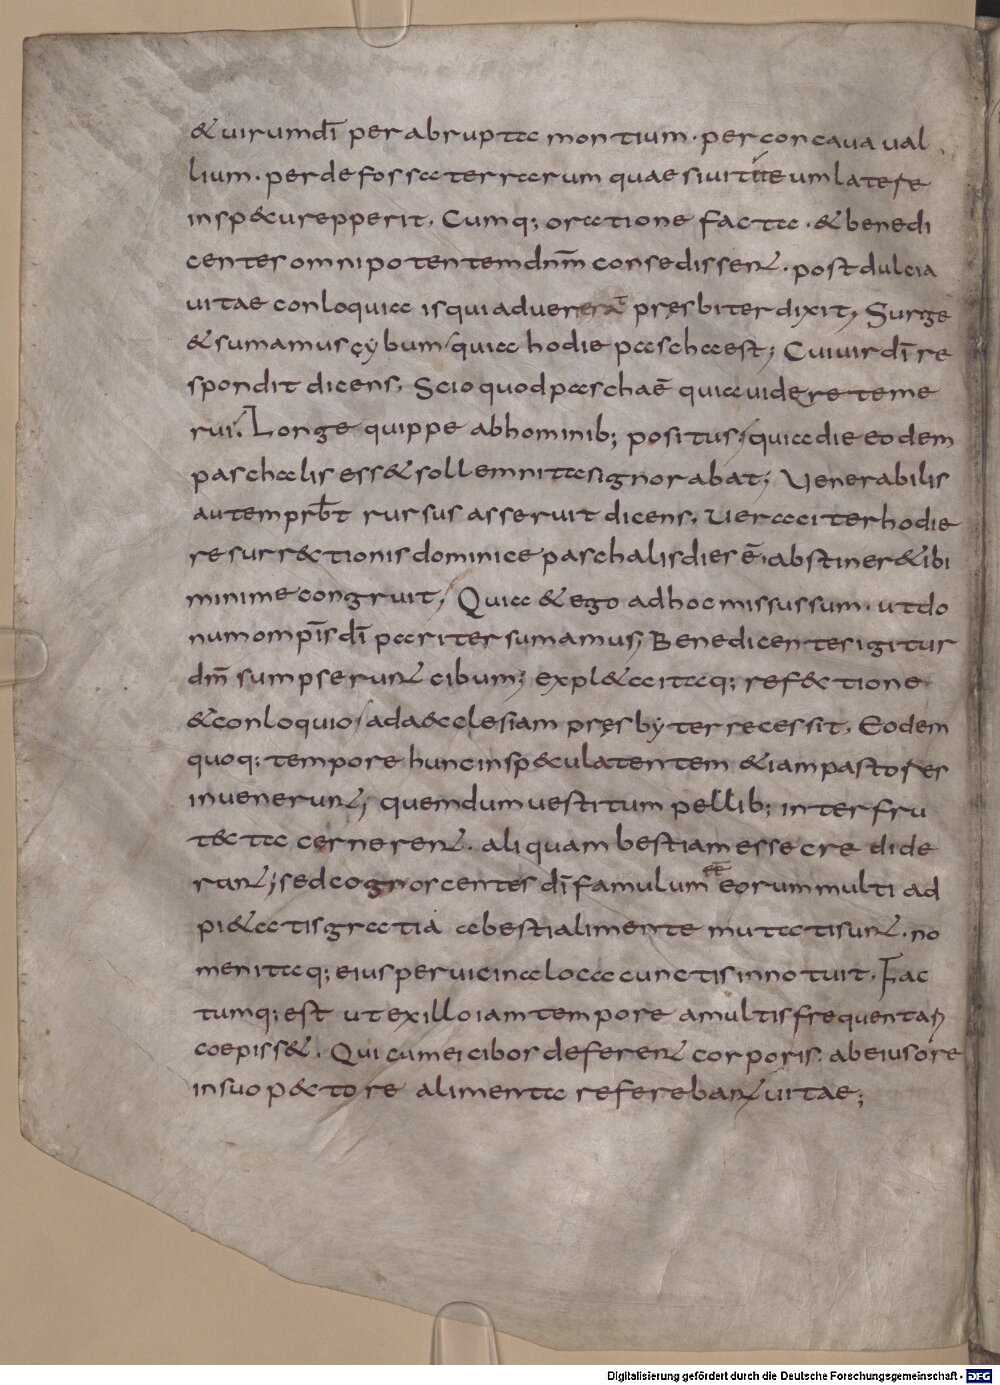 & uirum dī per abrupta montium · per concaua ual
lium · per defossa terrarum quaesiuit eum latere
in sp&cu repperit. Cumq; oratione facta · & benedi
centes omnipotentem dnm̄ consedissen& · post dulcia
uitae conloquia is qui aduenerat pręsbiter dixit; Surge
& sumamus cybum quia hodie pascha est; Cui uir dī re
spondit dicens. Scio quod pascha ē quia uidere te me
rui. Longe quippe ab hominib; positus; quia die eodem
paschalis ess& sollemnitas ignorabat; Uenerabilis
autem prb̄t rursus asseruit dicens. Ueraciter hodie
resurr&tionis dominice paschalis dies ē; abstiner& ibi
minime congruit; Quia & ego ad hoc missus sum · ut do
num omp̄is dī pariter sumamus; Benedicentes igitur
dm̄ sumpserunt cibum; expl&a itaq; ref&tione
& conloquio ad a&clesiam pręsbyter recessit. Eodem
quoq; tempore hunc in sp&cu latentem &iam pastores
inuenerunt; quem dum uestitum pellib; inter fru
t&ta cernerent · aliquam bestiam esse credide
rant; sed cognoscentes dī famulum eē eorum multi ad
pi&atis gratiā a bestiali mente mutati sunt · no
men itaq; eius per uicina loca cunctis innotuit. Fac
tumq; est ut ex illo iam tempore a multis frequentari
coepiss&. Qui cum ei cibos deferent corporis · ab eius ore
in suo p&tore alimenta referebant uitae;
Digitalisierung gefördert durch die Deutsche Forschungsgemeinschaft - DFG